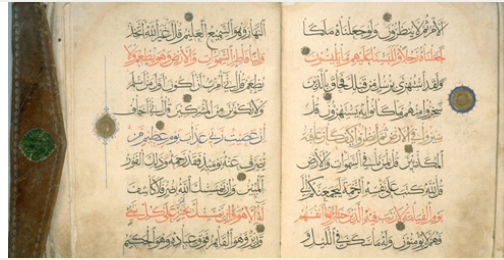 الامر ثم لا ينظرون ولو جعلناه ملكا
لجعلناه رجلا وللبسنا عليهم ما يلبسون
ولقد استهزئ برسل من قبلك فحاق بالذين
سخروا منهم ما كانوا به يستهزؤن قل
سيروا في الارض ثم انظروا كيف كان عاقبة
المكذبين قل لمن ما في السموات والارض
قل لله كتب على نفسه الرحمة ليجمعنكم الى
يوم القيمة لا ريب فيه الذين خسروا انفسهم
فهم لا يؤمنون وله ما سكن في الليل و
النهار وهو السميع العليم قل اغير الله اتخذ
وليا فاطر السموات والارض وهو يطعم ولا
يطعم قل اني امرت ان اكون اول من اسلم
ولا تكونن من المشركين قل اني اخاف
ان عصيت ربي عذاب يوم عظيم من
يصرف عنه يومئذ فقد رحمه وذلك الفوز
المبين وان يمسسك الله بضر فلا كاشف
له الا هو وان يمسسك بخير فهو على كل شيء
قدير وهو القاهر فوق عباده وهو الحكيم